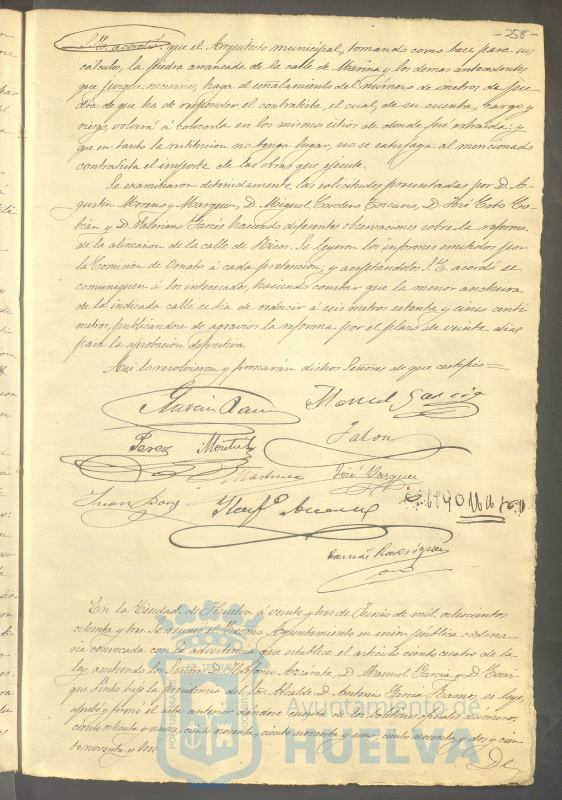 -258-
S. E. acordó: que el Arquitecto municipal, tomando como base para sus
cálculos, la piedra arrancada de la calle de Marina y los demas antecedentes
que juzgue necesarios, haga el señalamiento del número de metros de pie-
dra de que ha de responder el contratista, el cual, de su cuenta, cargo y
riesgo, volverá á colocarla en los mismos sitios de donde fué extraida: y
que en tanto la restitucion no tenga lugar, no se satisfaga al mencionado
contratista el importe de las obras que ejecute.
Se examinaron detenidamente las solicitudes presentadas por D. A-
gustin Moreno y Marquez, D. Miguel Cordero Toscano, D. José Coto Co-
bian y D. Valeriano Garcés haciendo diferentes observaciones sobre la reforma
de la alineacion de la calle de Ricos. Se leyeron los informes emitidos por
la Comision de Ornato á cada pretencion, y aceptandolos S. E. acordó se
comuniquen á los interesados, haciendo constar que la menor anchura
de la indicada calle se ha de reducir á seis metros setenta y cinco centi-
metros, publicandose de agravios la reforma por el plazo de veinte dias
para la aprobacion definitiva.
Asi lo resolvieron y firmarán dichos Señores de que certifico =
Garcia Ramos
Manuel Garcia
Perez
Montiel
Jalon
Martinez
José Vazquez
Juan
Ildefº Azcarate
Rodriguez
En la Ciudad de Huelva á veinte y tres de Junio de mil ochocientos
ochenta y tres. Se reunió el Excmo. Ayuntamiento en sesion pública ordina-
ria convocada con la advertencia que establece el articulo ciento cuatro de la
ley, asistiendo los Señores D. Ildefonso Azcárate, D. Manuel Garcia y D. Enri-
que Pinto bajo la presidencia del Sr. Alcalde D. Antonio Garcia Ramos, se leyó,
aprobó y firmó el acta anterior dandose cuenta de los boletines oficiales números
ciento ochenta y nueve, ciento noventa, ciento noventa y uno, ciento noventa y dos y cien-
to noventa y tres
De
Ayuntamiento de
HUELVA